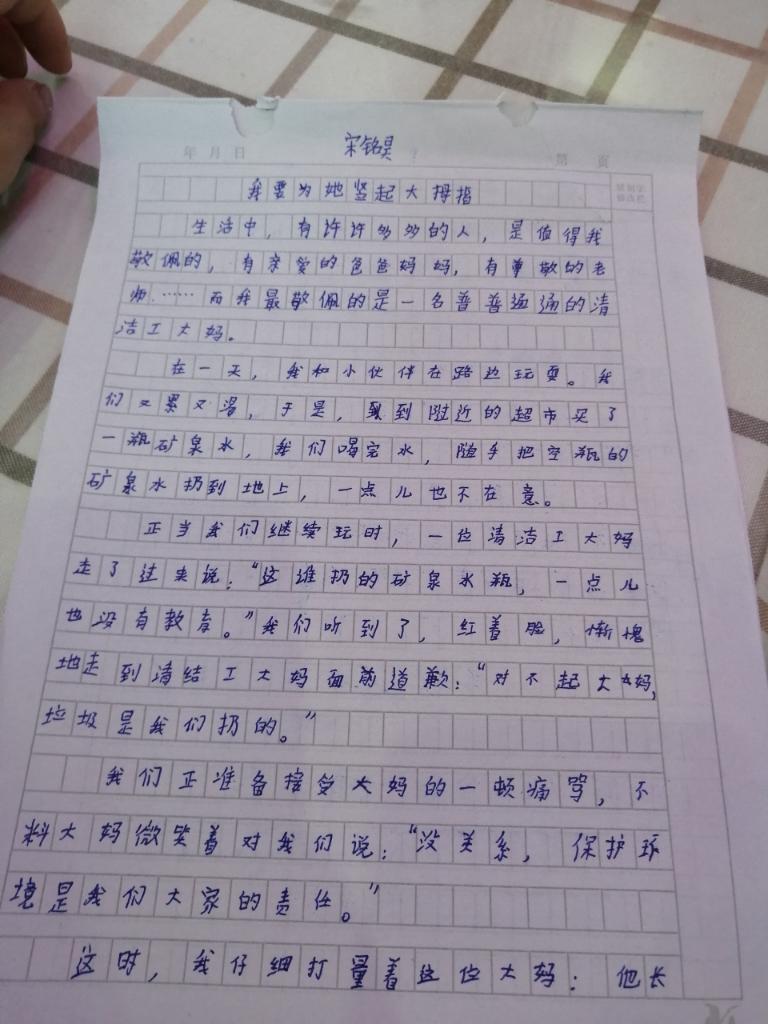 宋铭昊
年 月 日 第 页
我要为她竖起大拇指
生活中，有许许多多的人，是值得我
敬佩的，有亲爱的爸爸妈妈，有尊敬的老
师……而我最敬佩的是一名普普通通的清
洁工大妈。
在一天，我和小伙伴在路边玩耍。我
们又累又渴，于是，到附近的超市买了
一瓶矿泉水，我们喝完水，随手把空瓶的
矿泉水扔到地上，一点儿也不在意。
正当我们继续玩时，一位清洁工大妈
走了过来说：“这谁扔的矿泉水瓶，一点儿
也没有教育。”我们听到了，红着脸，惭愧
地走到清结工大妈面前道歉：“对不起大妈，
垃圾是我们扔的。”
我们正准备接受大妈的一顿痛骂，不
料大妈微笑着对我们说：“没关系，保护环
境是我们大家的责任。”
这时，我仔细打量着这位大妈：他长